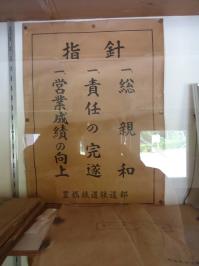 指針
一、総親和
一、責任の完遂
一、営業成績の向上
豊橋鉄道鉄道部